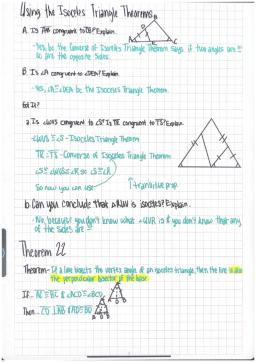 Using the Isosceles Triangle Theorems
A. Is AB congruent to CB? Explain.
- Yes, by the Converse of Isosceles Triangle Theorem says if two angles are ≅
so are the opposite sides.
B. Is ∠A congruent to ∠DEA? Explain
- Yes, ∠A≅∠DEA by the Isosceles Triangle Theorem.
Got It?
a. Is ∠WVS congruent to ∠S? Is TR congruent to TS? Explain.
∠WVS ≅ ∠S - Isosceles Triangle Theorem
TR ≅ TS - Converse of Isosceles Triangle Theorem
So now you can use
transitive prop.
b. Can you conclude that is isosceles? Explain.
- No, because you don't know what ∠WVR is & you don't know that any
of the sides are ≅
Theorem 22
Theorem - If a line bisects the vertex angle of an isosceles triangle, then the line is also
the perpendicular bisector of the base
If... AC ≅ BC & ∠ACD ≅ ∠BCD
Then... CD ⊥ AB & AD ≅ BD